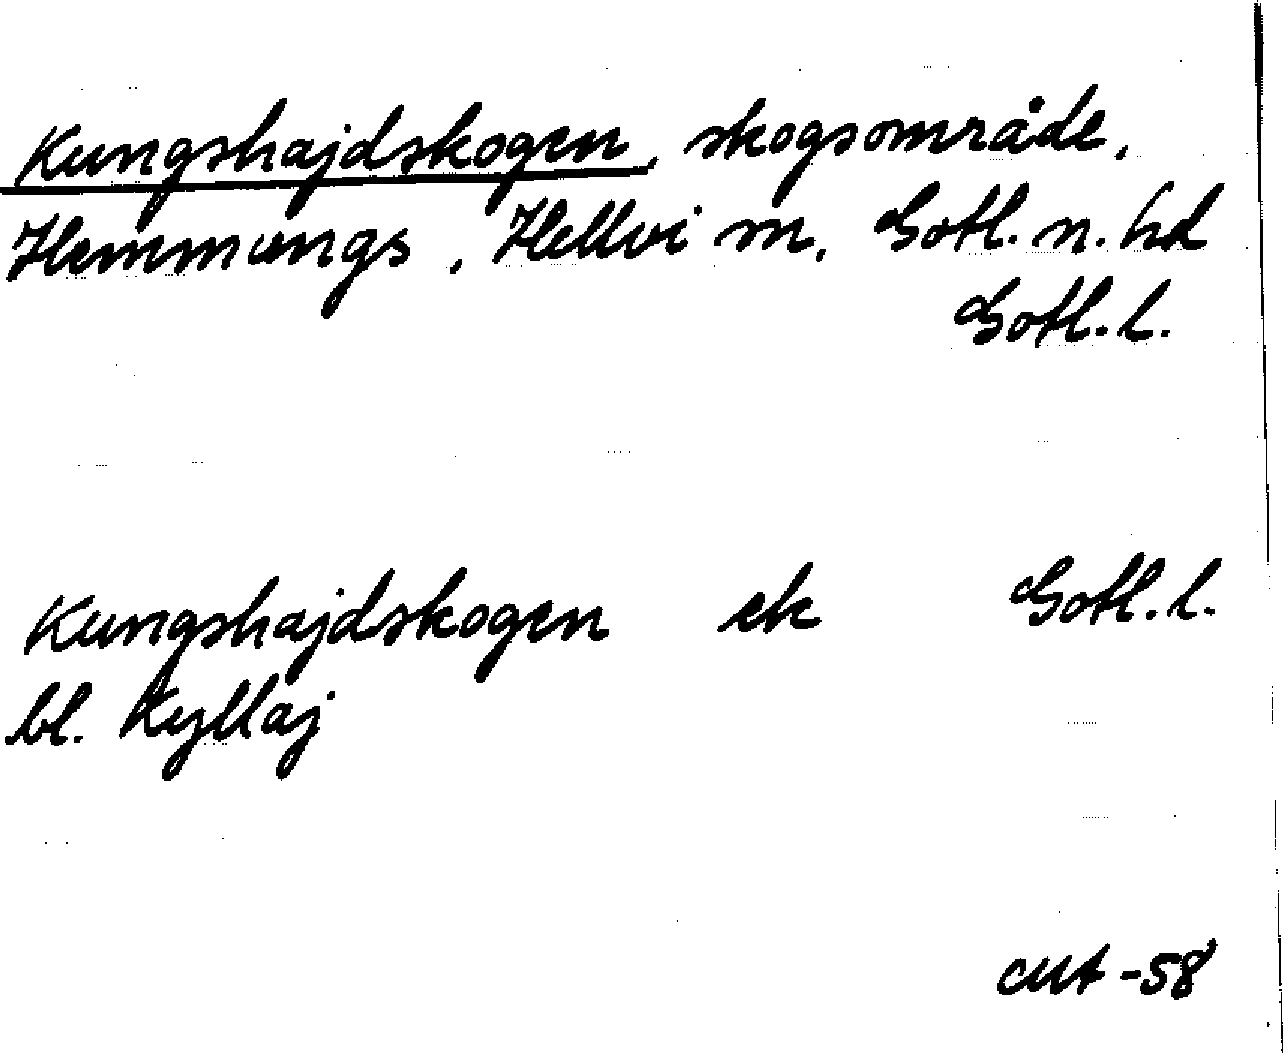 Kungshajdskogen, skogsområde,
Hemmungs, Hellvi sn, Gotl. n. hd
Gotl. l.
Kungshajdskogen ek Gotl. l.
bl. Kyllaj
-58